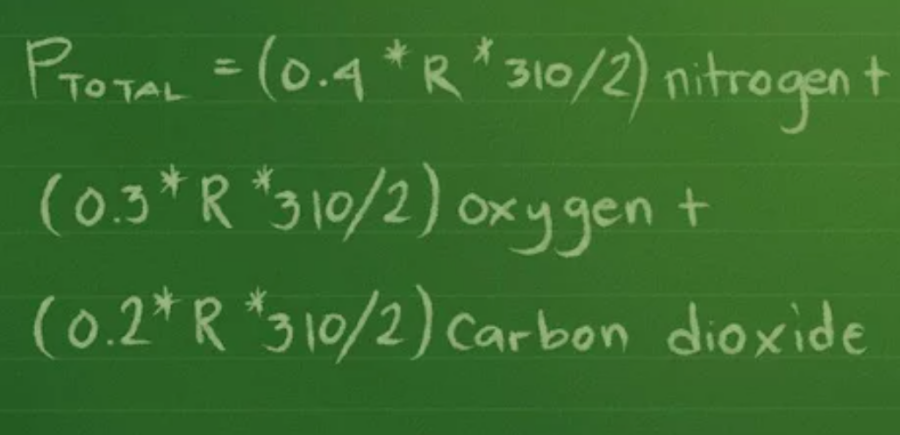 P TOTAL = (0.4 * R * 310/2) nitrogen +
(0.3 * R * 310/2) oxygen +
(0.2 * R * 310/2) Carbon dioxide